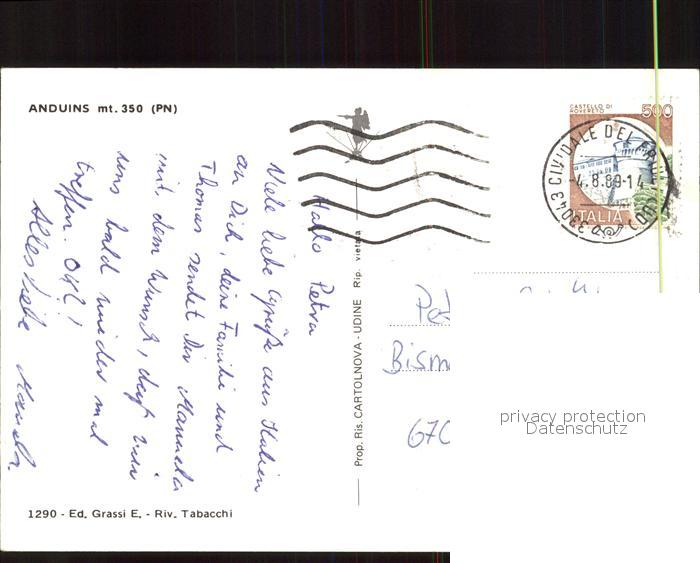 ANDUINS mt. 350 (PN)
Hallo Petra
Viele liebe Grüße aus Italien
an Dich, deine Familie und
Thomas sendet Dir Manuela
mit dem Wunsch, daß wir
uns bald wieder mal
treffen. Okay!
Alles Liebe Manuela
1290 - Ed. Grassi E. - Riv. Tabacchi
Prop. Ris. CARTOLNOVA - UDINE Rip. vietata
CASTELLO DI
ROVERETO
500
ITALIA
33043 CIVIDALE DEL
4.8.89-14
Pet
Bism
670
privacy protection
Datenschutz